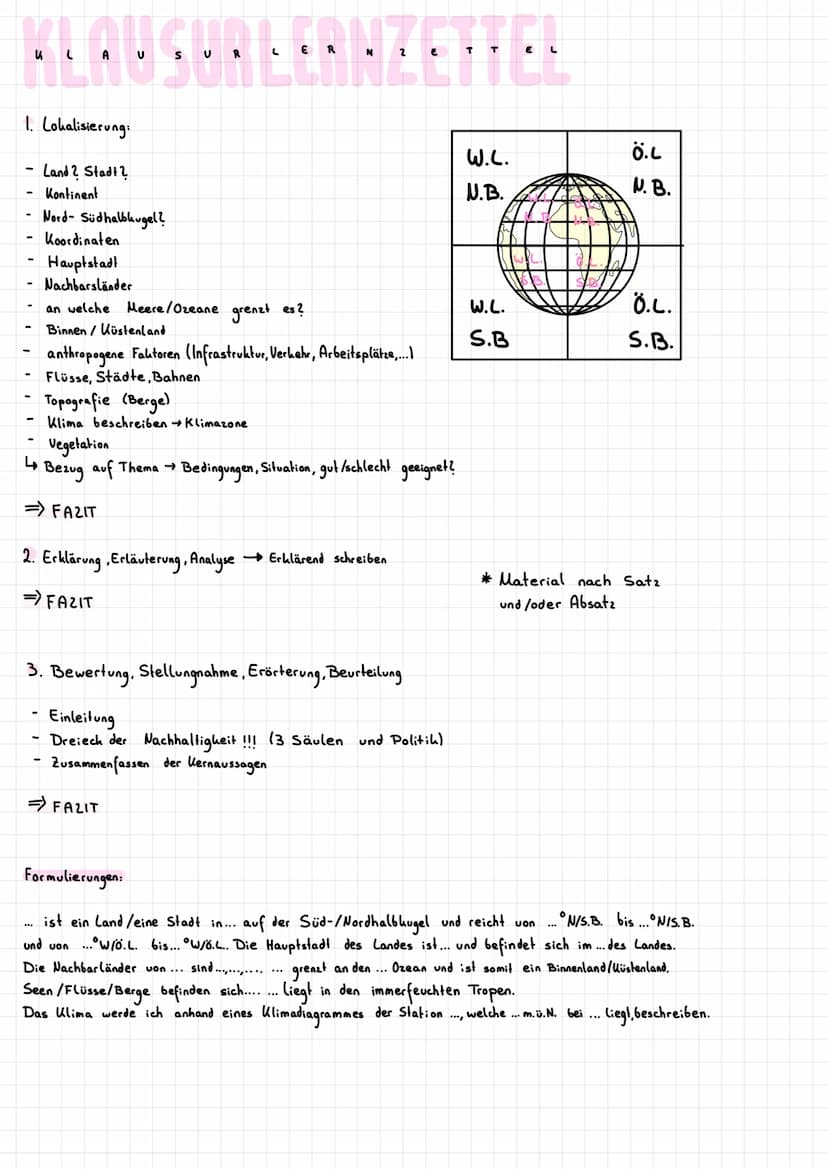 KLAUSURLERNZETTEL
KLAUSURLERNZETTEL
1. Lokalisierung:
- Land? Stadt?
- Kontinent
- Nord- Südhalbkugel?
- Koordinaten
- Hauptstadt
- Nachbarsländer
- an welche Meere/Ozeane grenzt es?
- Binnen / Küstenland
- anthropogene Faktoren (Infrastruktur, Verkehr, Arbeitsplätze,...)
- Flüsse, Städte, Bahnen
- Topografie (Berge)
- Klima beschreiben → Klimazone
- Vegetation
↳ Bezug auf Thema → Bedingungen, Situation, gut/schlecht geeignet?
⇒ FAZIT
W.L. Ö.L
N.B. N.B.
W.L. Ö.L.
N.B. N.B.
W.L. Ö.L.
S.B. S.B.
W.L. Ö.L.
S.B S.B.
2. Erklärung, Erläuterung, Analyse → Erklärend schreiben
⇒ FAZIT
* Material nach Satz
und/oder Absatz
3. Bewertung, Stellungnahme, Erörterung, Beurteilung
- Einleitung
- Dreieck der Nachhaltigkeit !!! (3 Säulen und Politik)
- Zusammenfassen der Kernaussagen
⇒ FAZIT
Formulierungen:
... ist ein Land/eine Stadt in... auf der Süd-/Nordhalbkugel und reicht von ...°N/S.B. bis ...°N/S.B.
und von ...°W/Ö.L. bis...°W/Ö.L.. Die Hauptstadt des Landes ist... und befindet sich im ... des Landes.
Die Nachbarländer von ... sind...,...,.... ... grenzt an den ... Ozean und ist somit ein Binnenland/Küstenland.
Seen/Flüsse/Berge befinden sich.... ... liegt in den immerfeuchten Tropen.
Das Klima werde ich anhand eines Klimadiagrammes der Station ..., welche ... m.ü.N. bei ... liegt, beschreiben.